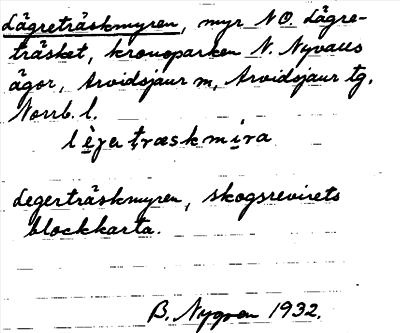 Lägreträskmyren, myr NO. Lägre-
träsket, kronoparken N. Nyvalls
ägor, Arvidsjaur sn, Arvidsjaur tg,
Norrb. l.
lègertræskmira
Legerträskmyren, skogsrevirets
blockkarta.
B. Nygren 1932.